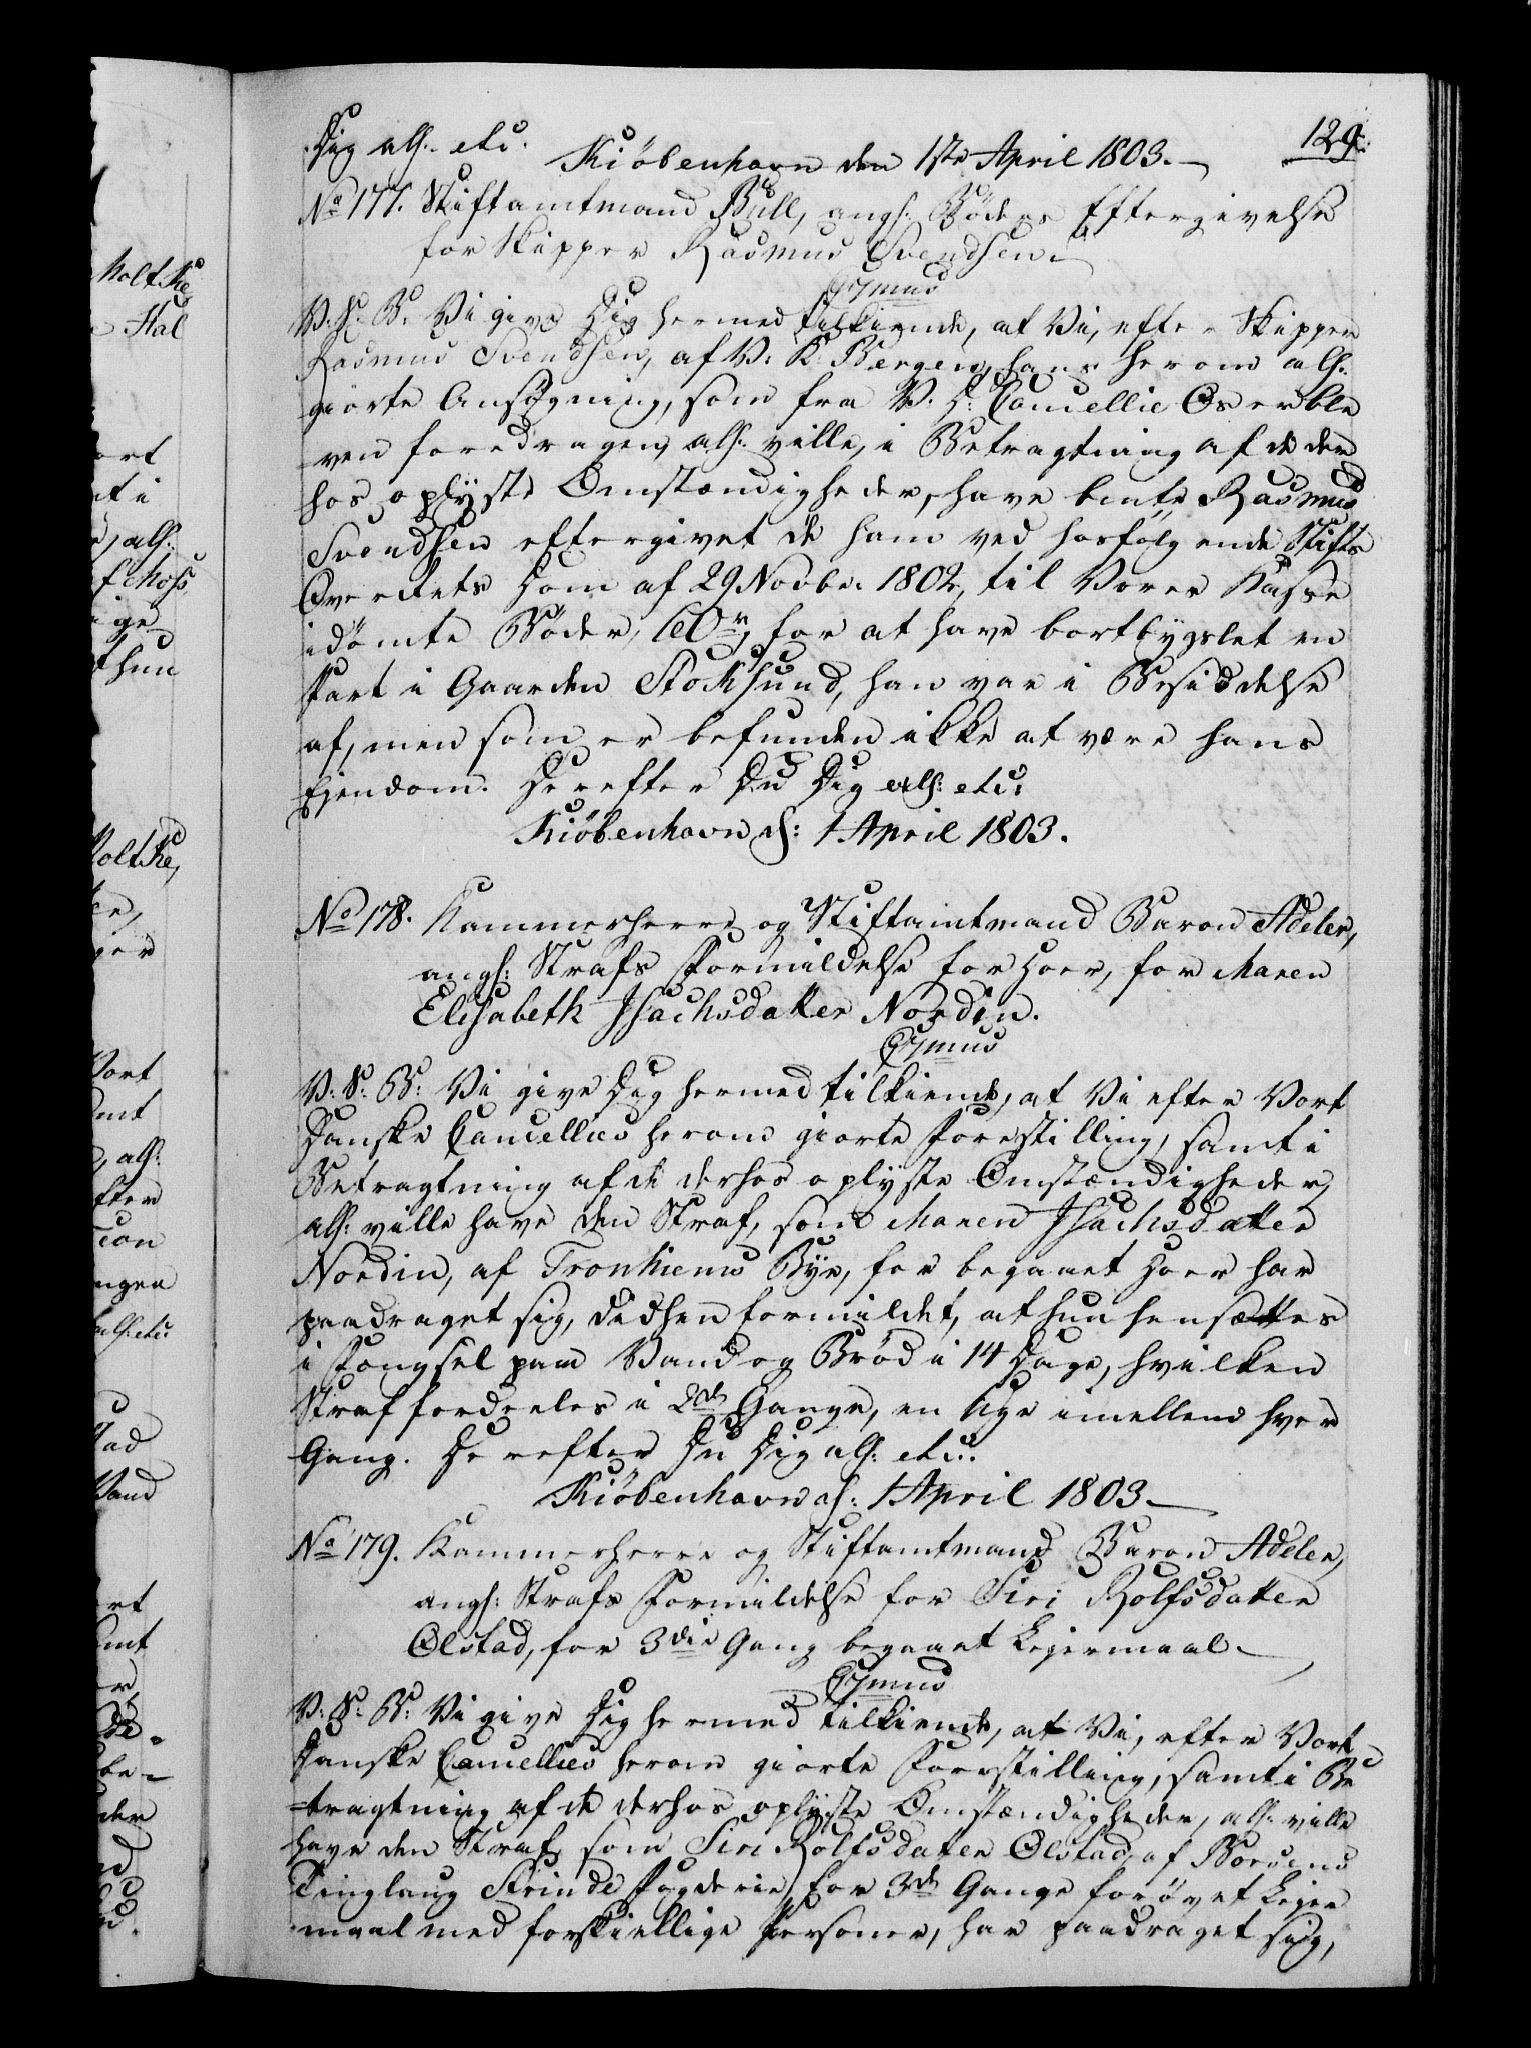 129.
Dig alh. etc.
Kiöbenhavn den 1ste April 1803.
No 177. Stiftamtmand Bull, angh: Böders Eftergivelse
for Skipper Rasmus Svendsen.
C7mus
V. S. B. Vi give Dig hermed tilkiende, at Vi, efter Skipper
Rasmus Svendsen, af V: K: Bergen, hans herom alh.
giorte Ansögning, som fra V. D: Cancellie Os er ble
ven foredragen, alh. ville, i Betragtning af de der
hos oplyste Omstændigheder, have bente Rasmus
Svendsen eftergivet de ham ved hosfölgende Stifts
Overrets Dom af 29 Novbr. 1802, til Vores Kasse
idömte Böder, 60 r, for at have bortbygslet en
Part i Gaarden Stoksund, han var i Besiddelse
af, men som er befunden ikke at være hans
Ejendom. Derefter Du Dig alh: etc:
Kiöbenhavn d: 1 April 1803.
No 178. Kammerherre og Stiftamtmand Baron Adeler,
angh: Strafs Formildelse for Hoer, for Maren
Elisabeth Isachsdatter Nordin.
C7mus
V: S: B: Vi give Dig hermed tilkiende, at Vi efter Vort
Danske Cancellies herom giorte Forestilling, samt i
Betragtning af de derhos oplyste Omstændigheder,
alh: ville have den Straf, som Maren Isachsdatter
Nordin, af Tronhiems Bye, for begaaet Hoer har
paadraget sig, didhen formildet, at hun hensættes
i Fængsel paa Vand og Bröd i 14 Dage, hvilken
Straf fordeeles i 2de Gange, en Uge imellem hver
Gang. Derefter Du Dig alh. etc.
Kiöbenhavn d: 1 April 1803.
No 179. Kammerherre og Stiftamtmand Baron Adeler,
angh: Strafs Formildelse for Siri Rolfsdatter
Ølstad, for 3die Gang begaaet Lejermaal.
C7mus
V: S: B: Vi give Dig hermed tilkiende, at Vi, efter Vort
Danske Cancellies herom giorte Forestilling, samt i Be
=tragtning af de derhos oplyste Omstændigheder, alh. ville
have den Straf, som Siri Rolfsdatter Ølstad, af Börsens
Tinglaug Strinde Fogderie, for 3de Gange forövet Lejer
maal med forskiellige Personer, har paadraget sig,